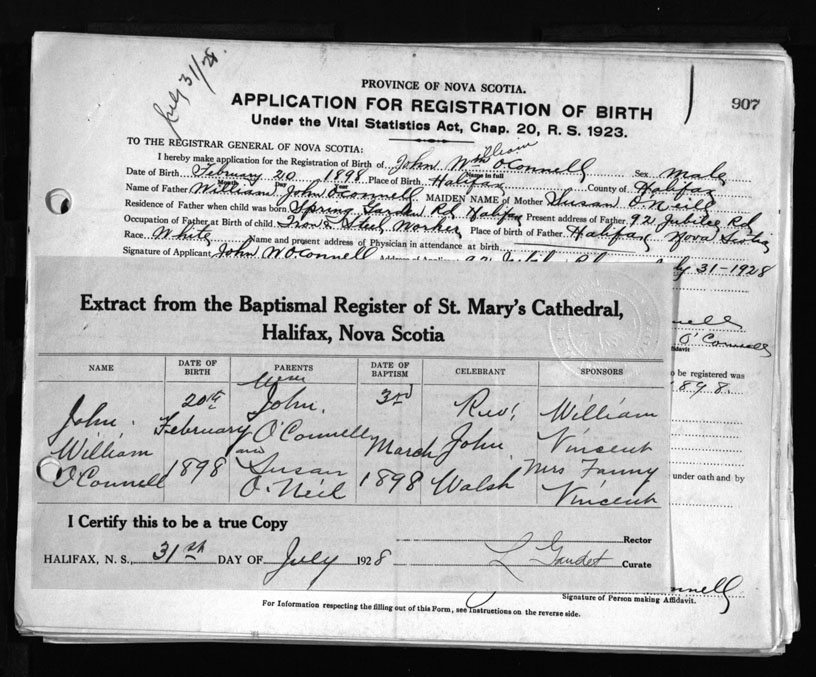 July 31/28.
PROVINCE OF NOVA SCOTIA.
907
APPLICATION FOR REGISTRATION OF BIRTH
Under the Vital Statistics Act, Chap. 20, R. S. 1923.
TO THE REGISTRAR GENERAL OF NOVA SCOTIA:
I hereby make application for the Registration of Birth of John William OConnell Sex Male
Name in full
Date of Birth February 20 1898 Place of Birth Halifax County of Halifax
Month Day Year
Name of Father William John OConnell MAIDEN NAME of Mother Susan O'Neill
Residence of Father when child was born Spring Garden Rd Halifax Present address of Father 92 Jubilee Rd
Occupation of Father at Birth of child Iron & Steel Worker Place of birth of Father Halifax Nova Scotia
Race White Name and present address of Physician in attendance at birth
Signature of Applicant John W OConnell Address of Applicant 92 Jubilee Rd July 31-1928
Extract from the Baptismal Register of St. Mary's Cathedral,
Halifax, Nova Scotia
NAME DATE OF BIRTH PARENTS DATE OF BAPTISM CELEBRANT SPONSORS
John. 20th John. 3rd Rev. William
William February O'Connell March John Vincent
O'Connell 1898 and Susan 1898 Walsh Mrs Fanny
O'Neil Vincent
O'Connell
Affidavit
to be registered was
1898
under oath and by
I Certify this to be a true Copy
Rector
HALIFAX, N. S., 31st DAY OF July 1928 L Gaudet Curate
Signature of Person making Affidavit.
For Information respecting the filling out of this Form, see Instructions on the reverse side.